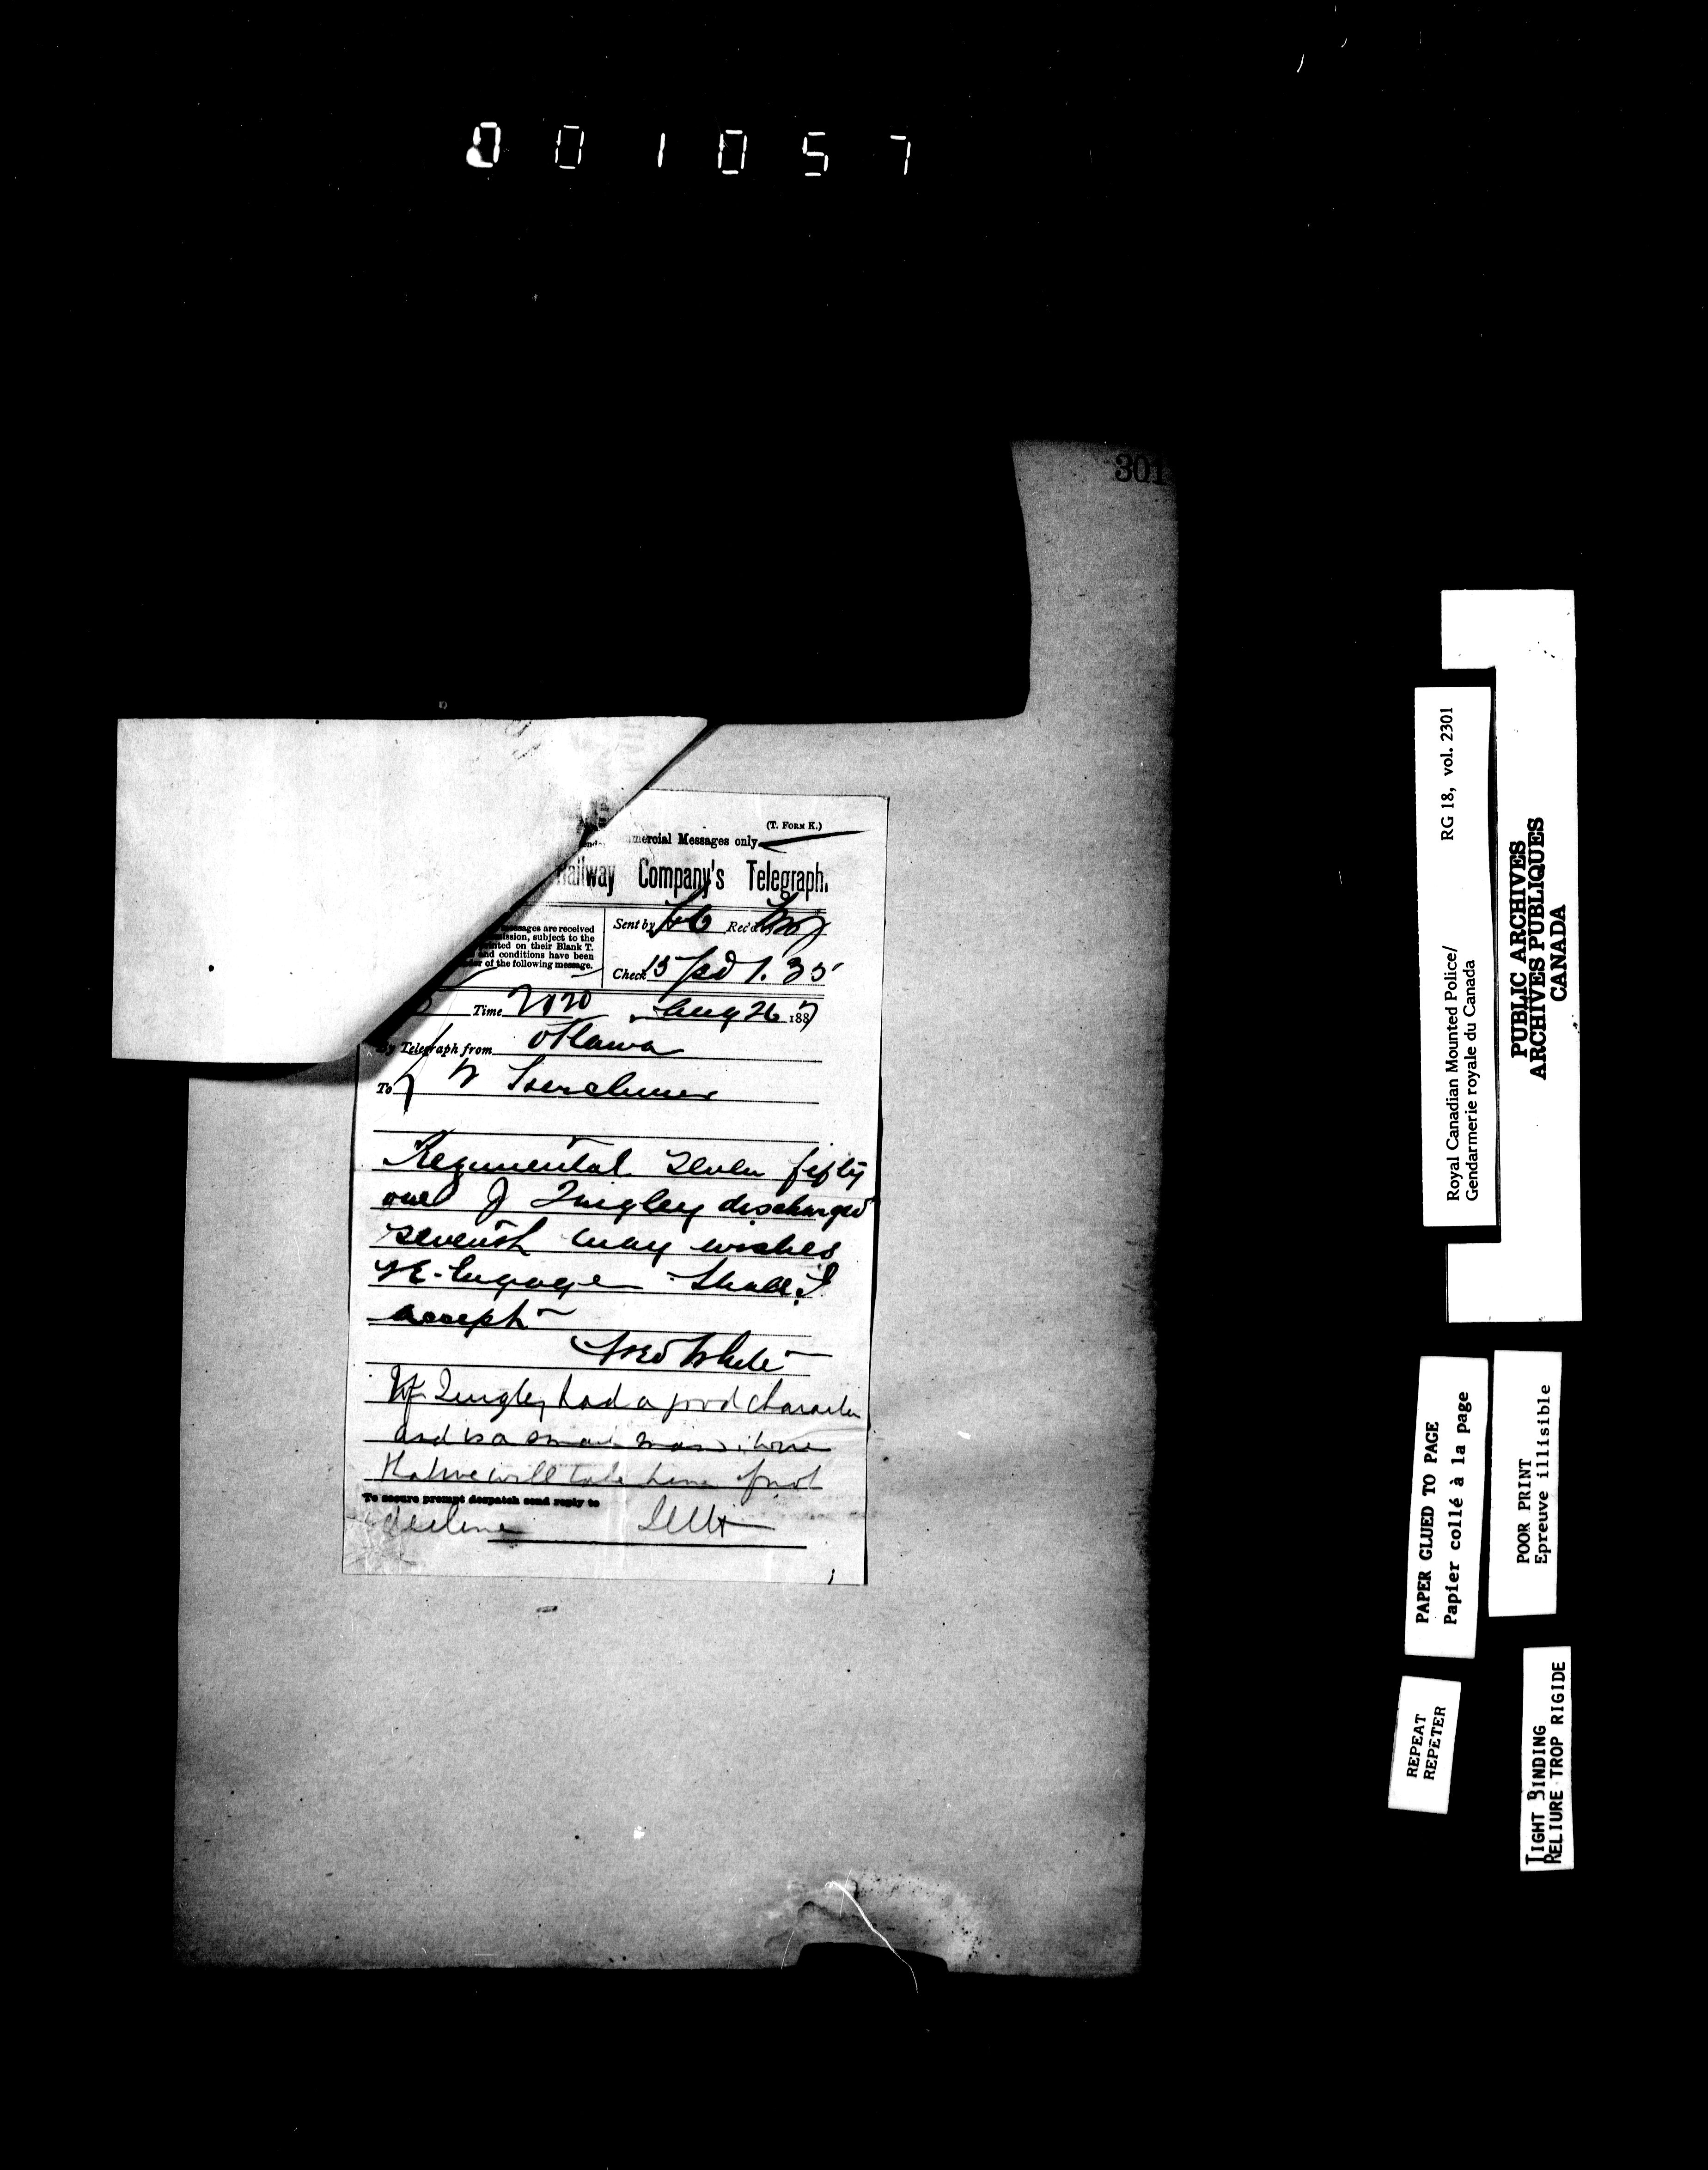 001057
301
(T. FORM K.)
mercial Messages only
Railway Company's Telegraph.
messages are received
mission, subject to the
printed on their Blank T.
and conditions have been
der of the following message.
Sent by Rec'd
Check 15 pd 1.35
Time Aug 26 1887
By Telegraph from Ottawa
To
Regimental Seven fifty
one J Tingley discharged
seventh may wishes
re-engage Shall I
accept
Fred White
If Tingley had a good character
and is a man
that we will take him if not
To secure prompt despatch send reply to
decline
Royal Canadian Mounted Police/ RG 18, vol. 2301
Gendarmerie royale du Canada
PUBLIC ARCHIVES
ARCHIVES PUBLIQUES
CANADA
PAPER GLUED TO PAGE
Papier collé à la page
POOR PRINT
Epreuve illisible
REPEAT
REPETER
TIGHT BINDING
RELIURE TROP RIGIDE